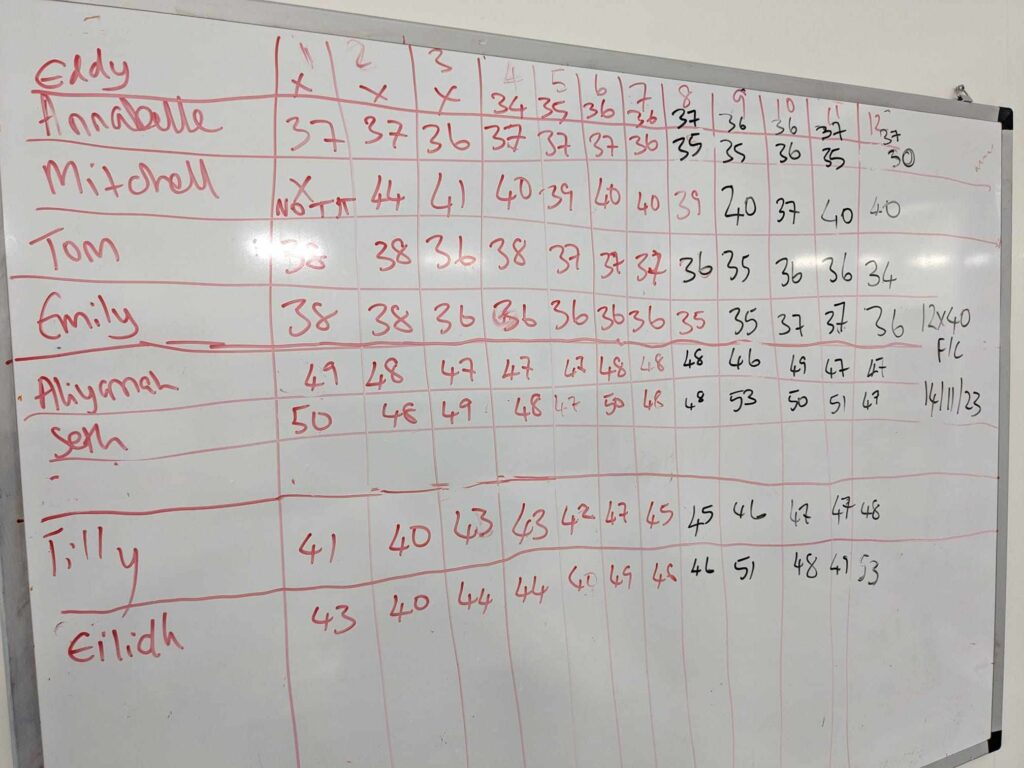 1 2 3 4 5 6 7 8 9 10 11 12
Eddy X X X 34 35 36 36 37 36 36 37 37
Annabelle 37 37 36 37 37 37 36 35 35 36 35 30
Mitchell X NOT IT 44 41 40 39 40 40 39 40 37 40 40
Tom 38 38 36 38 37 37 37 36 35 36 36 34
Emily 38 38 36 36 36 36 36 35 35 37 37 36 12x40
F/C
Aliyanah 49 48 47 47 47 48 48 48 46 49 47 47
Seth 50 48 49 48 47 50 48 48 53 50 51 47 14/11/23
Tilly 41 40 43 43 42 47 45 45 46 47 47 48
Eilidh 43 40 44 44 40 49 46 46 51 48 49 53